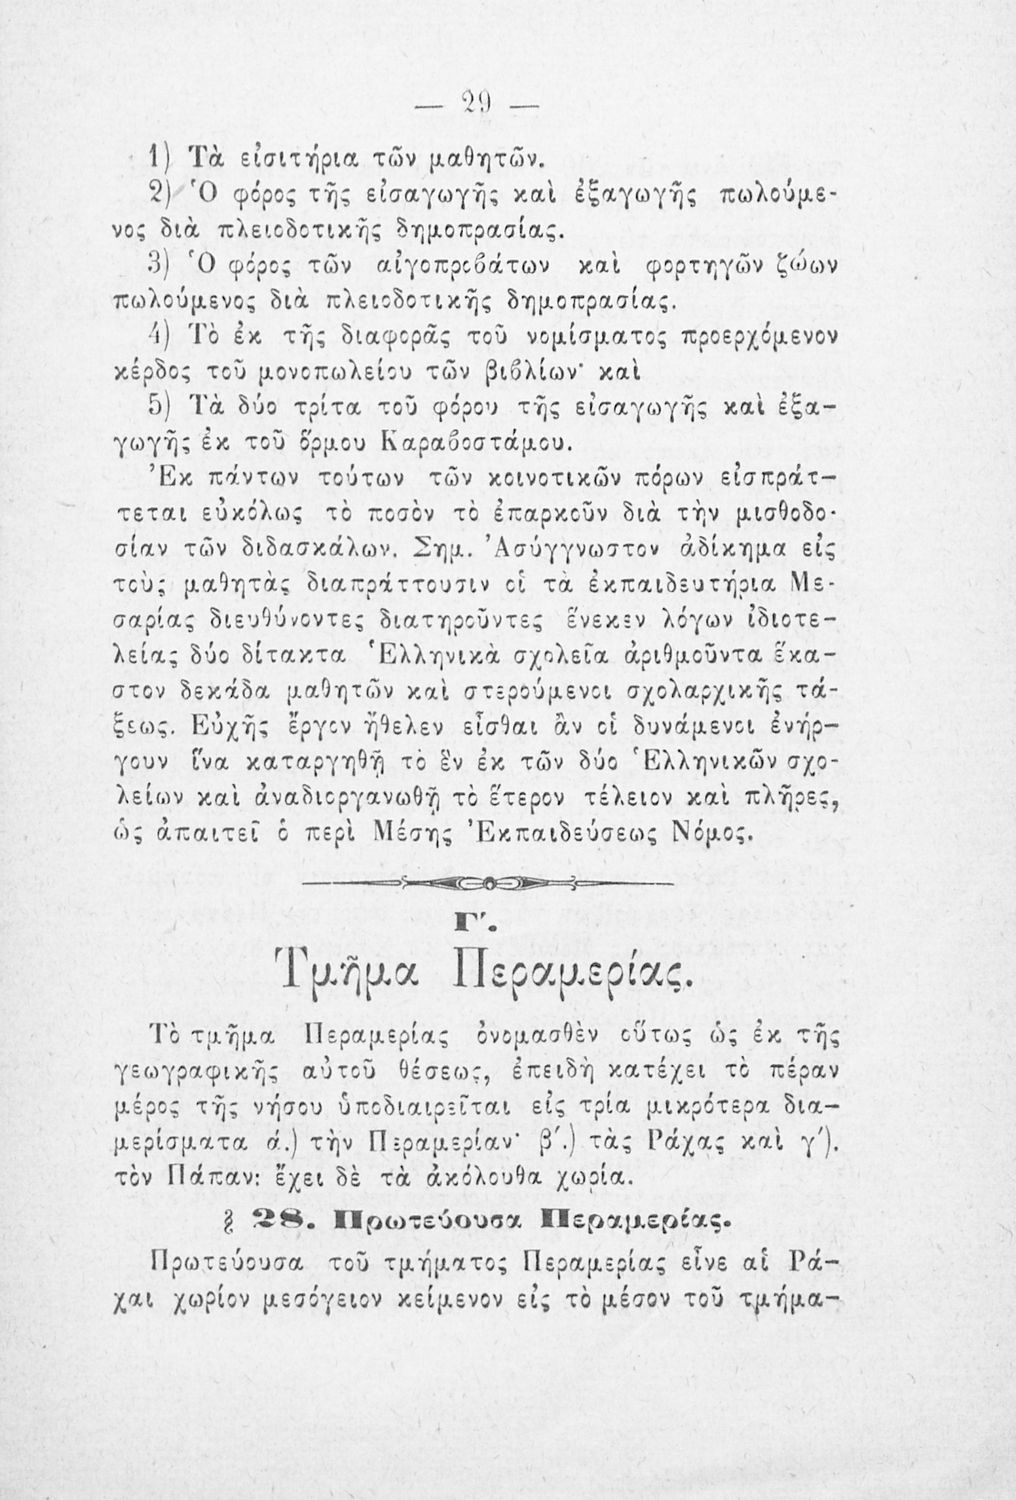 — 29 —
1) Τὰ εἰσιτήρια τῶν μαθητῶν.
2) Ὁ φόρος τῆς εἰσαγωγῆς καὶ ἐξαγωγῆς πωλούμε-
νος διὰ πλειοδοτικῆς δημοπρασίας.
3) Ὁ φόρος τῶν αἰγοπροβάτων καὶ φορτηγῶν ζώων
πωλούμενος διὰ πλειοδοτικῆς δημοπρασίας.
4) Τὸ ἐκ τῆς διαφορᾶς τοῦ νομίσματος προερχόμενον
κέρδος τοῦ μονοπωλείου τῶν βιβλίων· καὶ
5) Τὰ δύο τρίτα τοῦ φόρου τῆς εἰσαγωγῆς καὶ ἐξα-
γωγῆς ἐκ τοῦ ὅρμου Καραβοστάμου.
Ἐκ πάντων τούτων τῶν κοινοτικῶν πόρων εἰσπράτ-
τεται εὐκόλως τὸ ποσὸν τὸ ἐπαρκοῦν διὰ τὴν μισθοδο-
σίαν τῶν διδασκάλων. Σημ. Ἀσύγγνωστον ἀδίκημα εἰς
τοὺς μαθητὰς διαπράττουσιν οἱ τὰ ἐκπαιδευτήρια Με-
σαρίας διευθύνοντες διατηροῦντες ἕνεκεν λόγων ἰδιοτε-
λείας δύο δίτακτα Ἑλληνικὰ σχολεῖα ἀριθμοῦντα ἕκα-
στον δεκάδα μαθητῶν καὶ στερούμενοι σχολαρχικῆς τά-
ξεως. Εὐχῆς ἔργον ἤθελεν εἶσθαι ἂν οἱ δυνάμενοι ἐνήρ-
γουν ἵνα καταργηθῇ τὸ ἓν ἐκ τῶν δύο Ἑλληνικῶν σχο-
λείων καὶ ἀναδιοργανωθῇ τὸ ἕτερον τέλειον καὶ πλῆρες,
ὡς ἀπαιτεῖ ὁ περὶ Μέσης Ἐκπαιδεύσεως Νόμος.
Γ′.
Τμῆμα Περαμερίας.
Τὸ τμῆμα Περαμερίας ὀνομασθὲν οὕτως ὡς ἐκ τῆς
γεωγραφικῆς αὐτοῦ θέσεως, ἐπειδὴ κατέχει τὸ πέραν
μέρος τῆς νήσου ὑποδιαιρεῖται εἰς τρία μικρότερα δια-
μερίσματα ά.) τὴν Περαμερίαν· β′.) τὰς Ράχας καὶ γ′).
τὸν Πάπαν: ἔχει δὲ τὰ ἀκόλουθα χωρία.
§ 28. Πρωτεύουσα Περαμερίας.
Πρωτεύουσα τοῦ τμήματος Περαμερίας εἶνε αἱ Ρά-
χαι χωρίον μεσόγειον κείμενον εἰς τὸ μέσον τοῦ τμήμα-